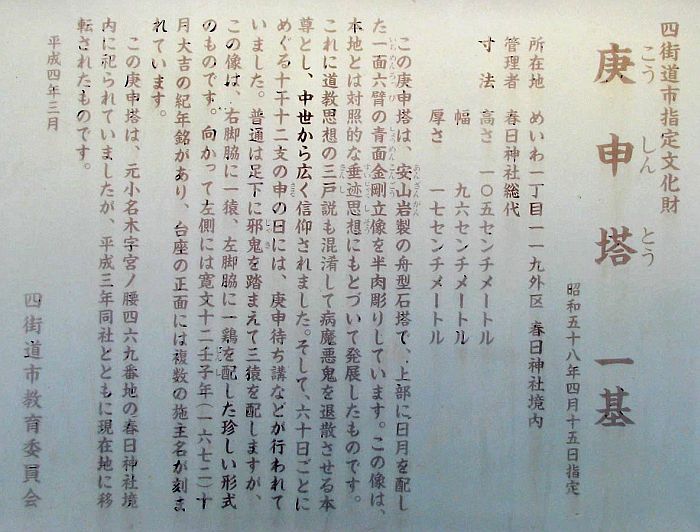 四街道市指定文化財
庚申塔 一基
こう しん とう
昭和五十八年四月十五日指定
所在地 めいわ一丁目一一九外区 春日神社境内
管理者 春日神社総代
寸法 高さ 一〇五センチメートル
幅 九六センチメートル
厚さ 一七センチメートル
この庚申塔は、安山岩製の舟型石塔で、上部に日月を配し
た一面六臂の青面金剛立像を半肉彫りしています。この像は、
本地とは対照的な垂迹思想にもとづいて発展したものです。
これに道教思想の三尸説も混淆して病魔悪鬼を退散させる本
尊とし、中世から広く信仰されました。そして、六十日ごとに
めぐる十干十二支の申の日には、庚申待ち講などが行われて
いました。 普通は足下に邪鬼を踏まえて三猿を配しますが、
この像は、右脚脇に一猿、左脚脇に一鶏を配した珍しい形式
のものです。向かって左側には寛文十二壬子年(一六七二)十
月大吉の紀年銘があり、台座の正面には複数の施主名が刻ま
れています。
この庚申塔は、元小名木字宮ノ腰四六九番地の春日神社境
内に祀られていましたが、平成三年同社とともに現在地に移
転されたものです。
平成四年三月
四街道市教育委員会